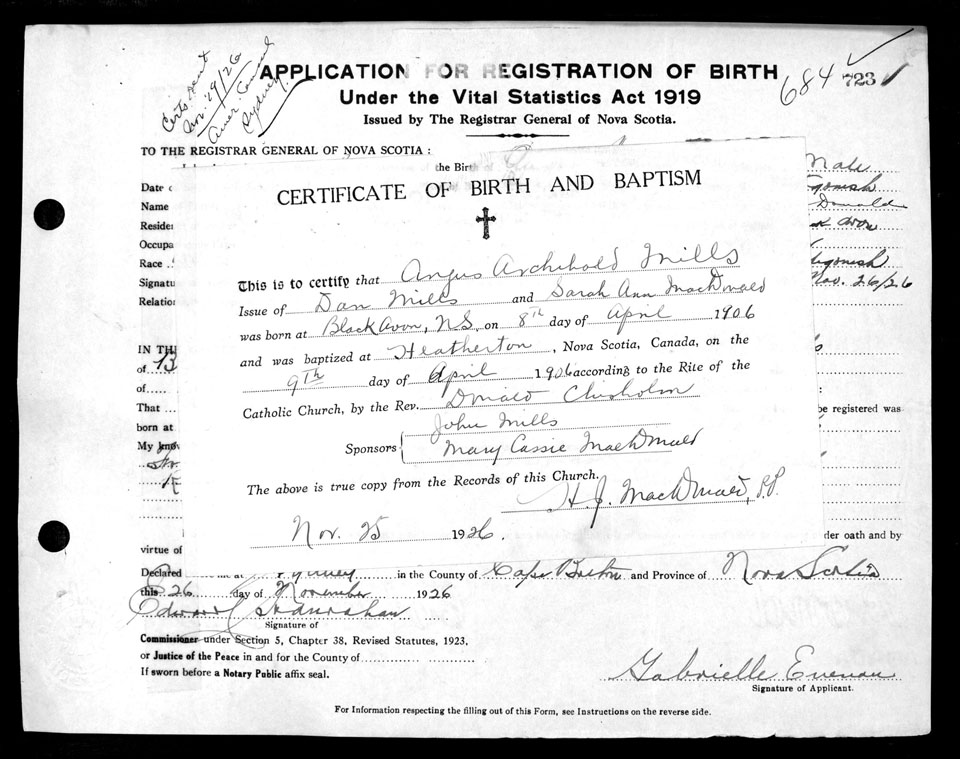 Certs. sent
Nov. 29/26
Amer. Consul
Sydney
684
723
APPLICATION FOR REGISTRATION OF BIRTH
Under the Vital Statistics Act 1919
Issued by The Registrar General of Nova Scotia.
TO THE REGISTRAR GENERAL OF NOVA SCOTIA :
the Birth
Male
Date
Name
Donald
Reside
Occupa
Race
Signatu
Nov. 26/26
Relation
CERTIFICATE OF BIRTH AND BAPTISM
This is to certify that Angus Archibald Mills
Issue of Dan Mills and Sarah Ann MacDonald
was born at Black Avon, N.S. on 8th day of April 1906
and was baptized at Heatherton, Nova Scotia, Canada, on the
9th day of April 1906 according to the Rite of the
Catholic Church, by the Rev. Donald Chisholm
Sponsors John Mills
Mary Cassie MacDonald
The above is true copy from the Records of this Church.
H. J. MacDonald, P.P.
Nov. 25 1926.
IN TH
of 13
of
That
be registered was
born at
My know
der oath and by
virtue of
Declared in the County of Cape Breton and Province of Nova Scotia
this 26 day of November 1926
Edward
Signature of
Commissioner under Section 5, Chapter 38, Revised Statutes, 1923,
or Justice of the Peace in and for the County of
If sworn before a Notary Public affix seal.
Gabrielle
Signature of Applicant.
For Information respecting the filling out of this Form, see Instructions on the reverse side.